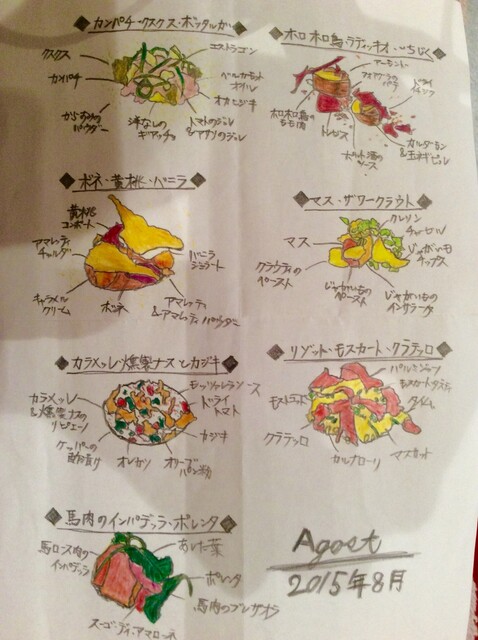 カンパチ・クスクス・ボッタルガ
エストラゴン
クスクス
カンパチ
ベルガモット
オイル
オカヒジキ
からすみの
パウダー
洋なしの
ギアッチョ
トマトのジュレ
&アサリのジュレ
ホロホロ鳥・ラディッキオ・いちじく
アーモンド
フォアグラの
ドライ
ホロホロ鳥の
もも肉
ポルト酒の
ソース
カルダモン
&玉ネギピュレ
ボネ・黄桃・バニラ
黄桃
コンポート
アマレッティ
バニラ
ジェラート
キャラメル
クリーム
ボネ
アマレッティ
&アマレッティパウダー
マス・ザワークラウト
クレソン
マス
じゃがいも
チップス
クラウティの
ペースト
じゃがいもの
ペースト
じゃがいもの
インサラータ
カラメッレ・燻製ナスとカジキ
モッツァレラソース
カラメッレ
&燻製ナスの
リピエノ
ドライ
トマト
カジキ
ケッパーの
酢漬け
オレガノ
オリーブ
パン粉
リゾット・モスカート・クラテッロ
パルミジャーノ
タイム
クラテッロ
カルナローリ
マスカット
馬肉のインパデッラ・ポレンタ
あした葉
馬ロース肉の
インパデッラ
ポレンタ
馬肉のブレザオラ
スーゴ・ディ・アマローネ
Agost
2015年8月